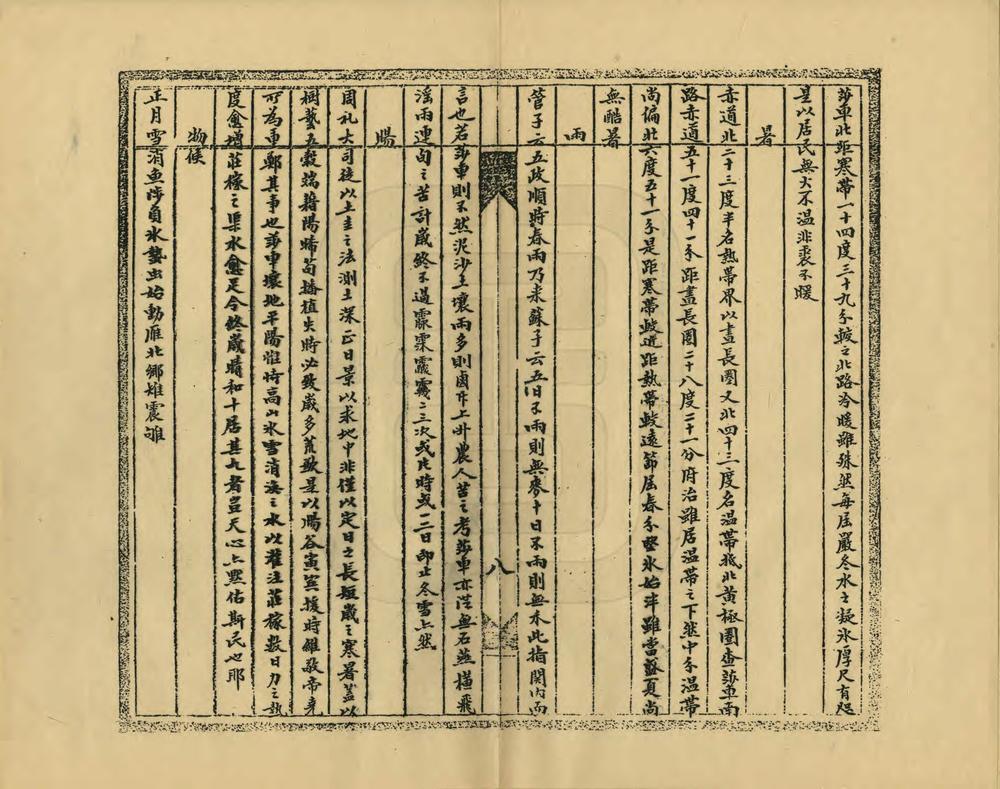 莎車北距寒帶一十四度三十九分較之北路冷暖雖殊然每屆嚴冬水土凝氷厚尺有咫
是以居民無火不温非裘不暖
暑
赤道北二十三度半名熱帶界以晝長圈又北四十三度名温帶抵北黃極圈查莎車南
路赤道五十一度四十一分距晝長圈二十八度二十一分府治雖居温帶之下然中分温帶
尚偏北六度五十一分是距寒帶較近距熱帶較遠節屆春分堅氷始泮雖當盛夏尚
無酷暑
雨
管子云五政順時春雨乃来蘇子云五日不雨則無麥十日不雨則無禾此指関内而
八
言也若莎車則不然泥沙土壤雨多則鹵升上升農人苦之考莎車亦從無石燕橫飛
滛雨連旬之苦計歲終不過霢霂靉靆二三次或片時或一二日即止冬雪亦然
暘
周礼大司徒以土圭之法測土深正日景以求地中非僅以定日之長短歲之寒暑蓋以
樹藝五榖端藉陽晞苟播植失時必致歲多荒歉是以暘谷寅賓援時維敬帝堯
可為重鄭其事也莎車壤地平陽惟恃高山氷雪消洩之水以灌注莊稼數日力之熱
度愈增莊稼之渠水愈足今終歲晴和十居其九者豈天心亦默佑斯民也耶
物候
正月雪消魚陟負氷蟄虫始動雁北鄉雉震雊